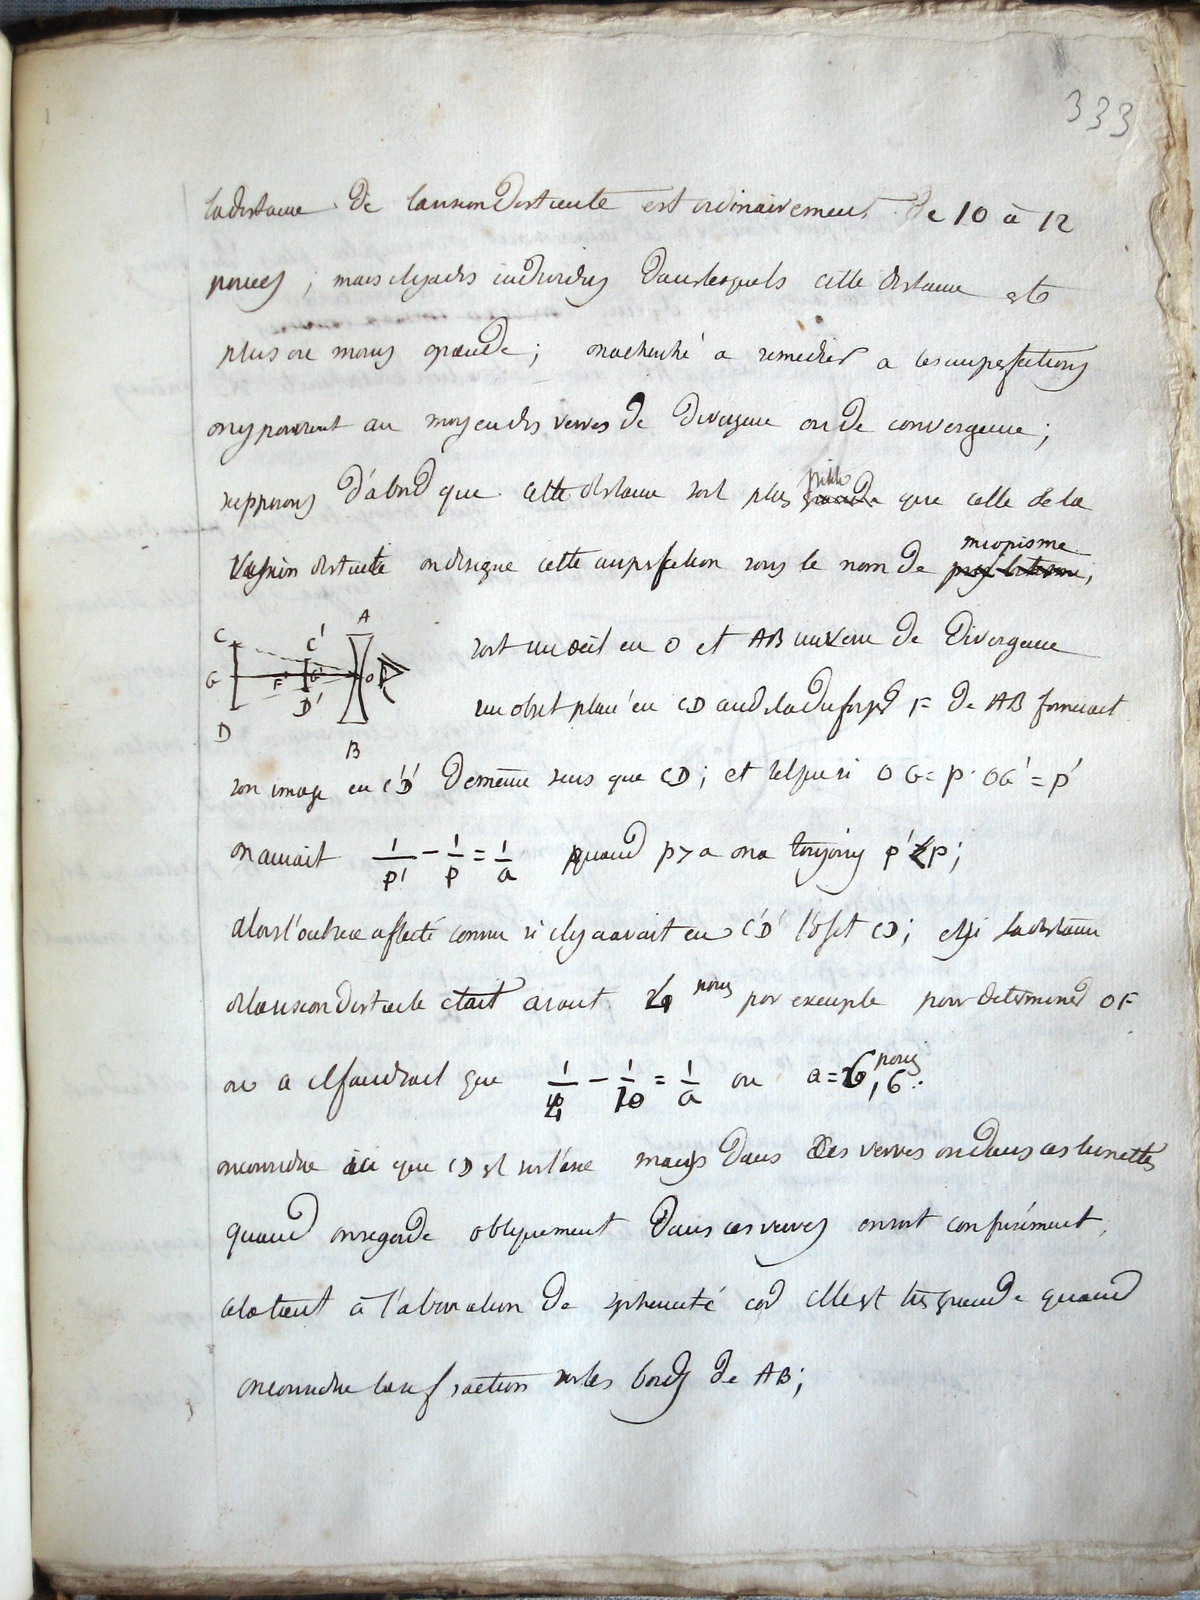 333
la distance de la vision distincte est ordinairement de 10 à 12
pouces ; mais il y a des individus dans lesquels cette distance est
plus ou moins grande ; on a cherché a remedier a ces imperfections
on y parvient au moyen des verres de divergence ou de convergence ;
supposons d'abord que cette distance soit plus petite que celle de la
vision distincte on designe cette imperfection sous le nom de miopisme
soit un oeil en O et AB un verre de divergence
un objet placé en CD au delà du foyer F de AB formerait
son image en C'D' de même sens que CD ; et telque si OG = p . OG' = p'
on aurait 1/p' - 1/p = 1/a quand p > a on a toujours p' < p ;
alors l'out est affecté comme si il y avait en C'D' l'objet CD ; et si la distance
de la vision distincte etait avant 4 pouces par exemple pour determiner OF
ou a il faudrait que 1/4 - 1/10 = 1/a ou a = 6,6 pouces
on considere ici que CD est sur l'axe mais dans ces verres ou dans ces lunettes
quand on regarde obliquement dans ces verres on voit confusément,
cela tient à l'aberration de sphericité car elle est très grande quand
on considere la refraction sur les bords de AB ;
C
G
D
C'
F
G'
D'
A
O
B